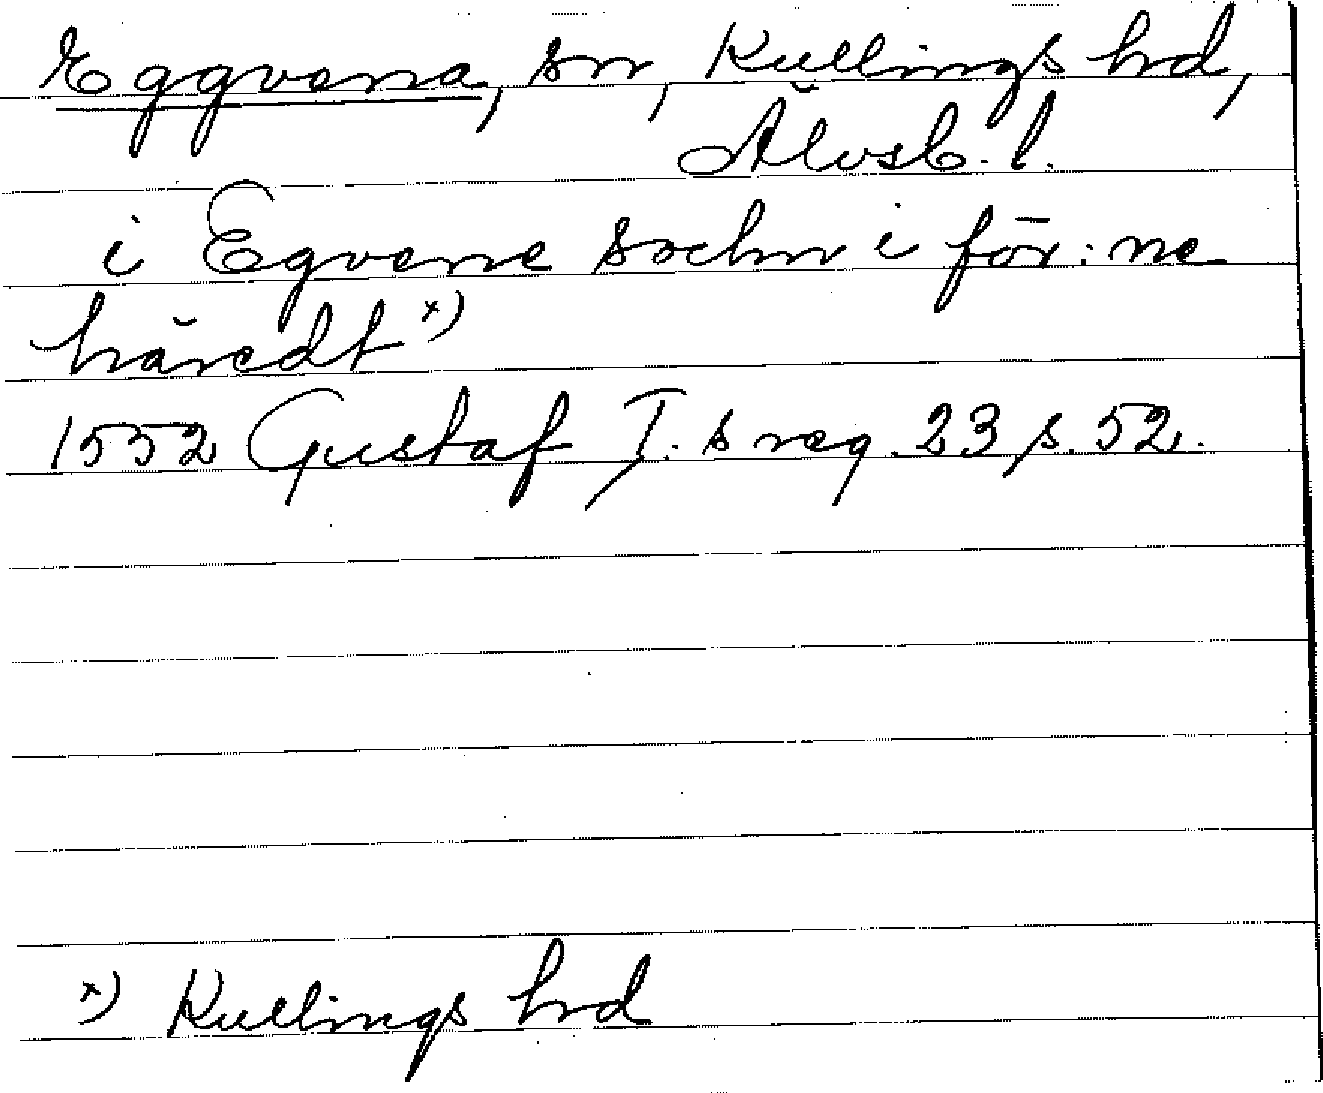 Eggvena, sn, Kullings hd,
Älvsb. l.
i Egvene sochn i för:ne
häredt x)
1552 Gustaf I:s reg. 23 s. 52.
x) Kullings hd